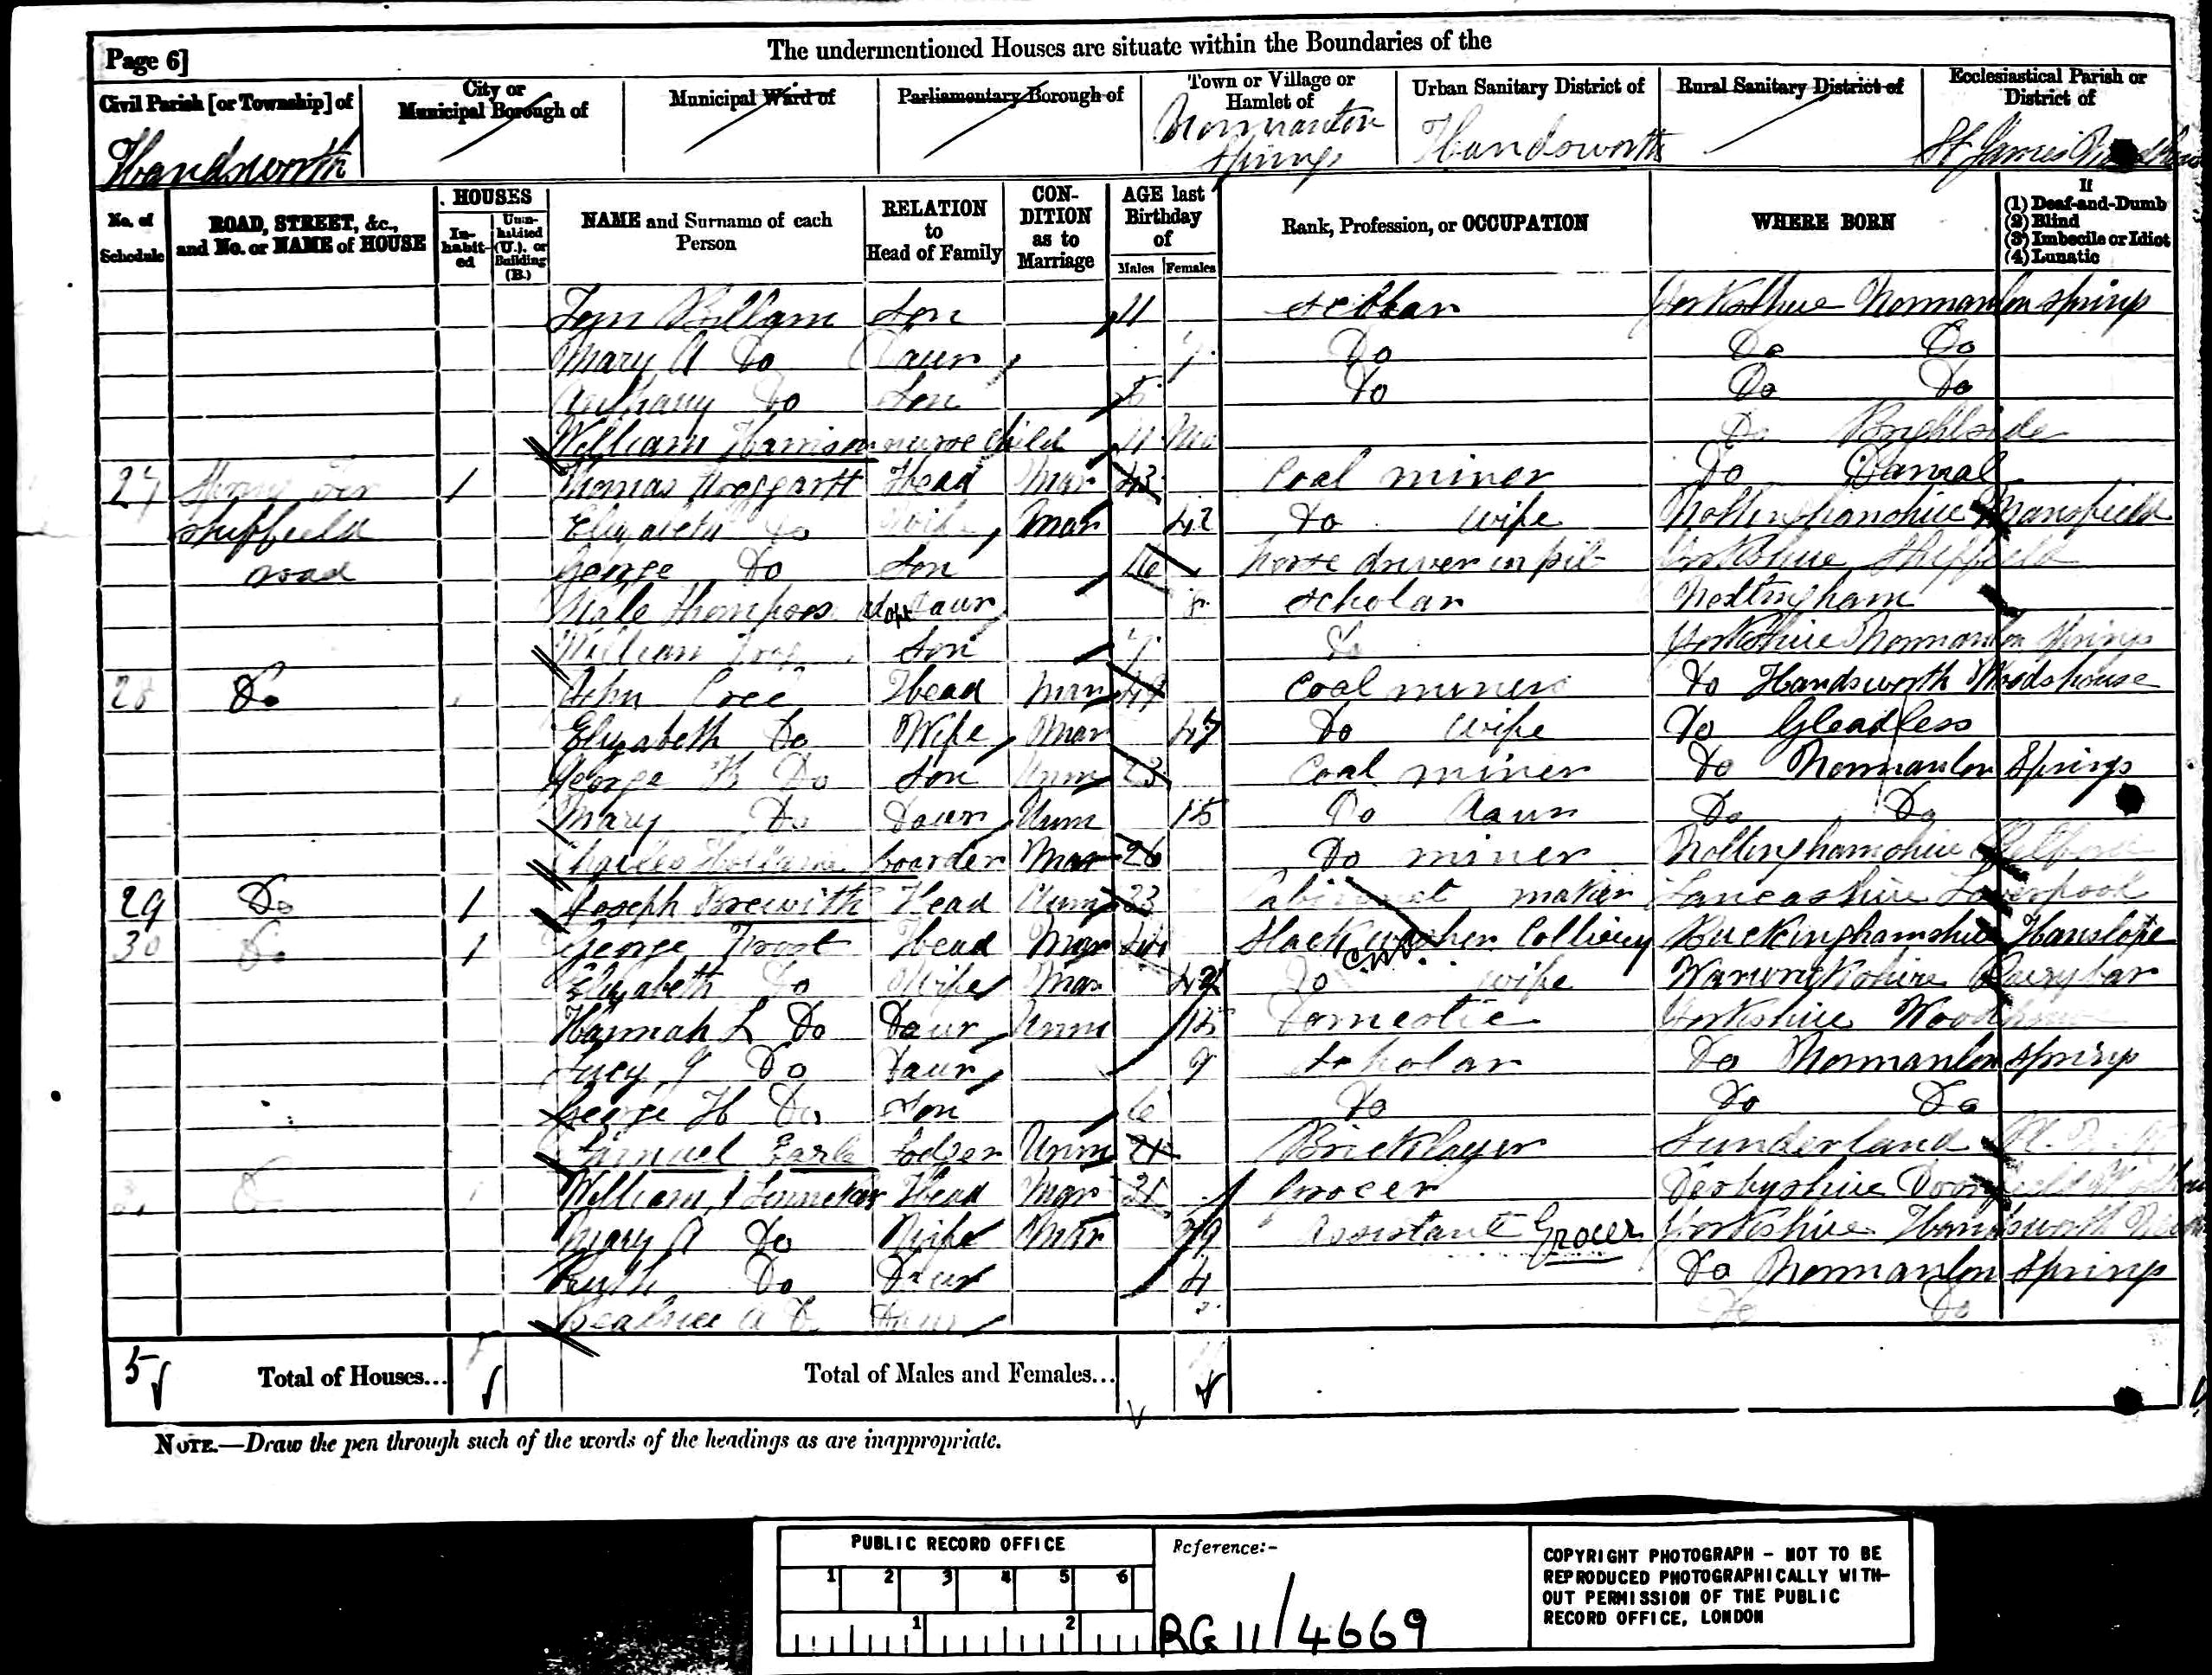 Page 6]
The undermentioned Houses are situate within the Boundaries of the
Civil Parish [or Township] of
Handsworth
City or Municipal Borough of
Municipal Ward of
Parliamentary Borough of
Town or Village or Hamlet of
Normanton Springs
Urban Sanitary District of
Handsworth
Rural Sanitary District of
Ecclesiastical Parish or District of
St James
No. of Schedule
ROAD, STREET, &c., and No. or NAME of HOUSE
HOUSES
Inhabited
Uninhabited (U.), or Building (B.)
NAME and Surname of each Person
RELATION to Head of Family
CONDITION as to Marriage
AGE last Birthday of
Males Females
Rank, Profession, or OCCUPATION
WHERE BORN
If
(1) Deaf-and-Dumb
(2) Blind
(3) Imbecile or Idiot
(4) Lunatic
Son 11 Scholar Yorkshire Normanton Springs
Mary A Do Daur 7 Do Do Do
Anthony Do Son 5 Do Do Do
William Harrison nurse child 11 Mo Do Brightside
27 1 Thomas Head Mar 43 Coal miner Do
Sheffield Elizabeth Do Wife Mar 42 Do wife Nottinghamshire Mansfield
road George Do Son 16 horse driver in pit Yorkshire Sheffield
Adopt Daur 8 Scholar Nottingham
William Son 7 Do Yorkshire Normanton Springs
28 Do John Cree Head Mar 49 Coal miner Do Handsworth Woodshouse
Elizabeth Do Wife Mar 47 Do wife Do Gleadless
George H Do Son Unm 23 Coal miner Do Normanton Springs
Mary Do Daur Unm 15 Do daur Do Do
Charles boarder Mar 26 Do miner Nottinghamshire
29 Do 1 Joseph Head Unm 23 Cabinet maker Lancashire Liverpool
30 Do 1 George Frost Head Mar 44 Slack washer Colliery Buckinghamshire Hanslope
Elizabeth Do Wife Mar Do wife Warwickshire
Hannah L Do Daur Unm 15 Domestic Yorkshire Woodhouse
Lucy Do Daur 9 Scholar Do Normanton Springs
George H Do Son 6 Do Do Do
Samuel Earle Lodger Unm 21 Bricklayer Sunderland
William Head Mar 31 Grocer Derbyshire
Mary A Do Wife Mar 29 Assistant Grocer Yorkshire Handsworth
Ruth Do Daur 4 Do Normanton Springs
Beatrice A Do Daur Do Do
5 Total of Houses...
Total of Males and Females...
NOTE.—Draw the pen through such of the words of the headings as are inappropriate.
PUBLIC RECORD OFFICE
1 2 3 4 5 6
1 2
Reference:-
RG 11/4669
COPYRIGHT PHOTOGRAPH - NOT TO BE
REPRODUCED PHOTOGRAPHICALLY WITH-
OUT PERMISSION OF THE PUBLIC
RECORD OFFICE, LONDON